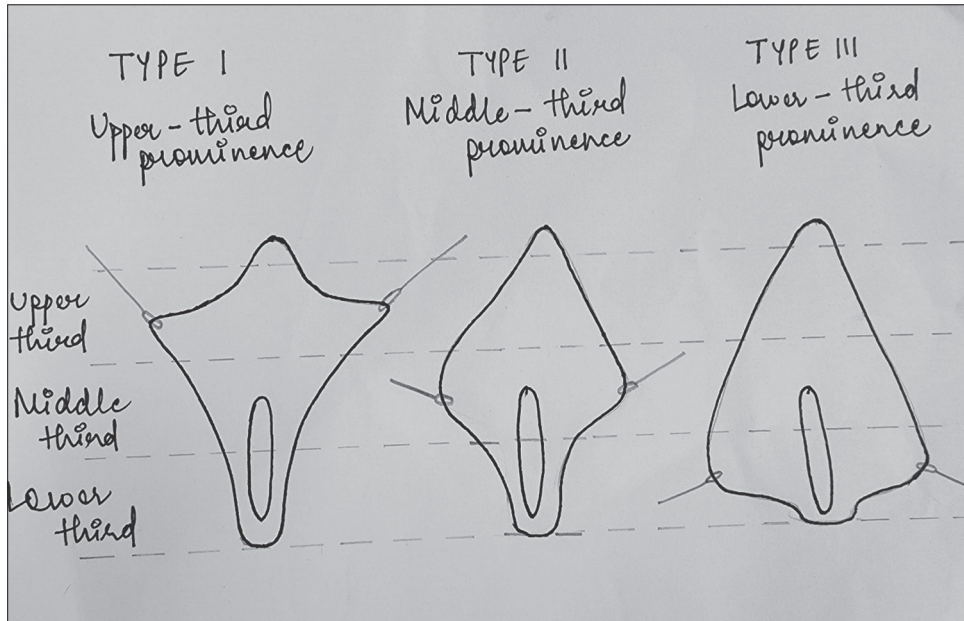 TYPE I
Upper-third
prominence
TYPE II
Middle-third
prominence
TYPE III
Lower-third
prominence
Upper
third
Middle
third
Lower
third